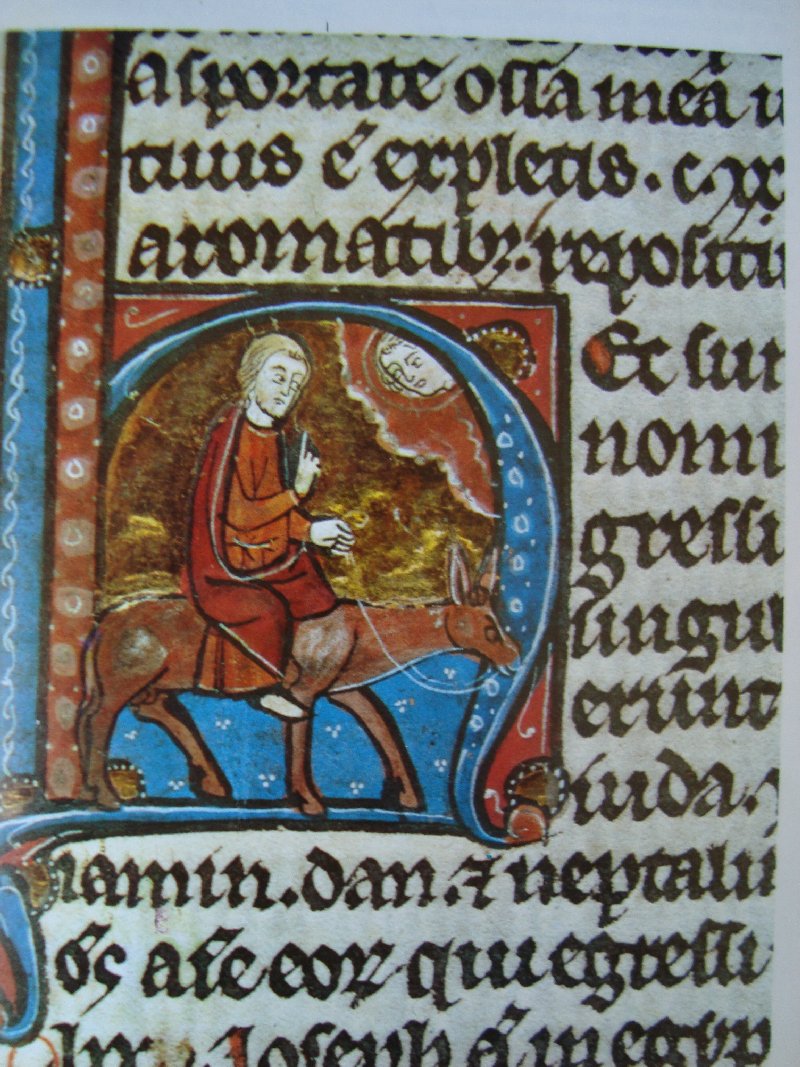 asportate ossa meã u
tuus ẽ expletis . c . xx
aromatibꝫ . repositu
Ec sun
nomi
gressi
singu
erunt
iuda .
iamin . dan . ⁊ neptali
õs aĩe eoꝝ qui egressi
lxx . Joseph aũ in egyp